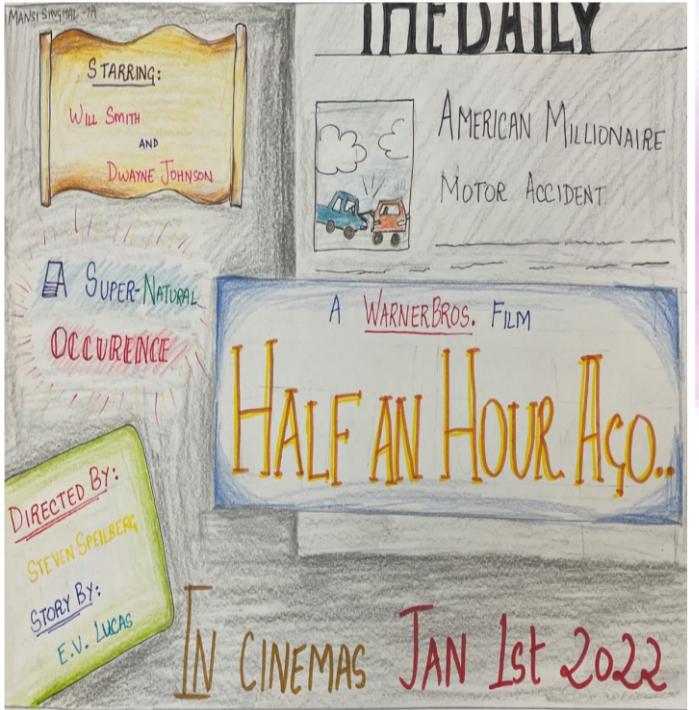 MANSI SINGHAL -7A
STARRING:
WILL SMITH
AND
DWAYNE JOHNSON
THE DAILY
AMERICAN MILLIONAIRE
MOTOR ACCIDENT
A SUPER-NATURAL
OCCURENCE
A WARNERBROS. FILM
HALF AN HOUR AGO..
DIRECTED BY:
STEVEN SPEILBERG
STORY BY:
E.V. LUCAS
IN CINEMAS JAN 1st 2022